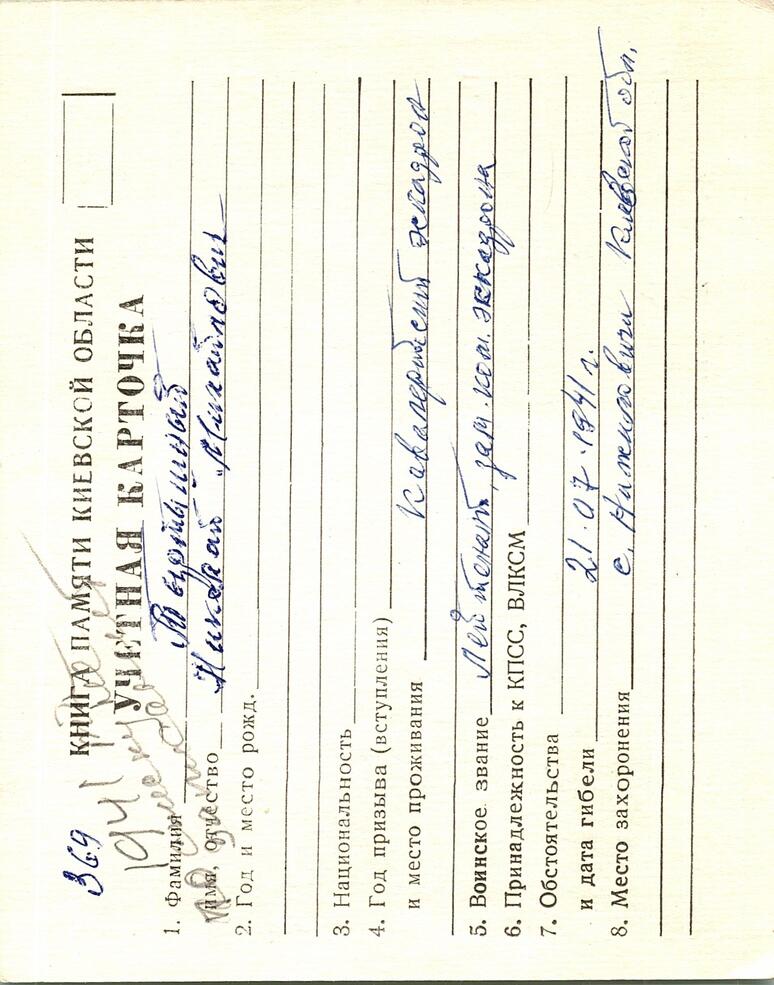 369
КНИГА ПАМЯТИ КИЕВСКОЙ ОБЛАСТИ
УЧЕТНАЯ КАРТОЧКА
1941
1. Фамилия
имя, отчество Николай Михайлович
2. Год и место рожд.
3. Национальность
4. Год призыва (вступления)
и место проживания Кавалерийский эскадрон
5. Воинское звание Лейтенант, зам. ком. эскадрона
6. Принадлежность к КПСС, ВЛКСМ
7. Обстоятельства
и дата гибели 21.07.1941 г.
8. Место захоронения с. Нижиловичи Киевской обл.